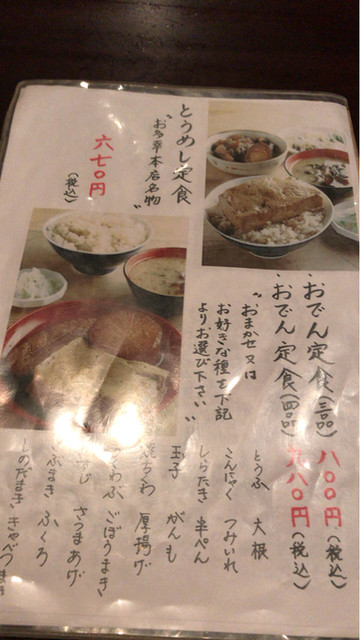 とうめし定食
"お多幸本店名物"
六七〇円
(税込)
おでん定食(三品) 八〇〇円(税込)
おでん定食(四品) 九八〇円(税込)
"おまかせ又は
お好きな種を下記
よりお選び下さい"
とうふ 大根
こんにゃく つみいれ
しらたき 半ぺん
玉子 がんも
焼ちくわ 厚揚げ
ちくわぶ ごぼうまき
さつまあげ
ぶまき ふくろ
しのだまき きゃべつまき